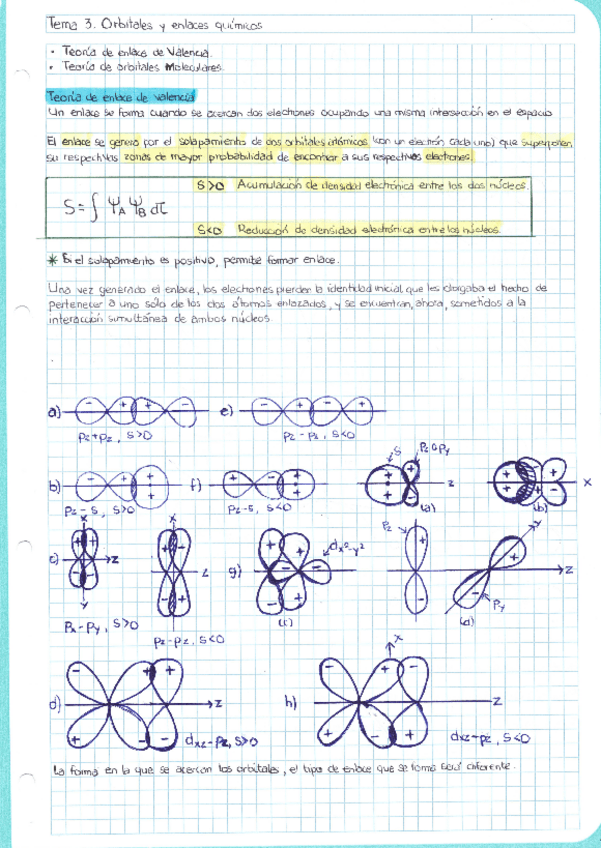 Tema 3. Orbitales y enlaces químicos
• Teoría de enlace de Valencia.
• Teoría de orbitales Moleculares.
Teoría de enlace de valencia
Un enlace se forma cuando se acercan dos electrones ocupando una misma intersección en el espacio
El enlace se genera por el solapamiento de dos orbitales atómicos (con un electrón cada uno) que superponen
su respectivas zonas de mayor probabilidad de encontrar a sus respectivos electrones.
S>0 Acumulación de densidad electrónica entre los dos núcleos.
S=∫ΨA ΨB dτ
S<0 Reducción de densidad electrónica entre los núcleos.
* Si el solapamiento es positivo, permite formar enlace.
Una vez generado el enlace, los electrones pierden la identidad inicial que les otorgaba el hecho de
pertenecer a uno solo de los dos átomos enlazados, y se encuentran, ahora, sometidos a la
interacción simultánea de ambos núcleos.
a) - + + - e) - + - +
pz+pz, S>0 pz-pz, S<0
S pz o py
b) - + + + f) + - + + + + + - z + + + - x
pz-s, S>0 pz-s, S<0 (a) (b)
x x pz y
c) - - + + z - + + - z g) + + - - + + dx²-y² + - + - z
py
px-py, S>0 (c) (d)
pz-pz, S<0
x
d) - + + + - - z h) - + - + - + z
dxz-pz, S>0 dxz-pz, S<0
La forma en la que se acercan los orbitales, el tipo de enlace que se forma será diferente.